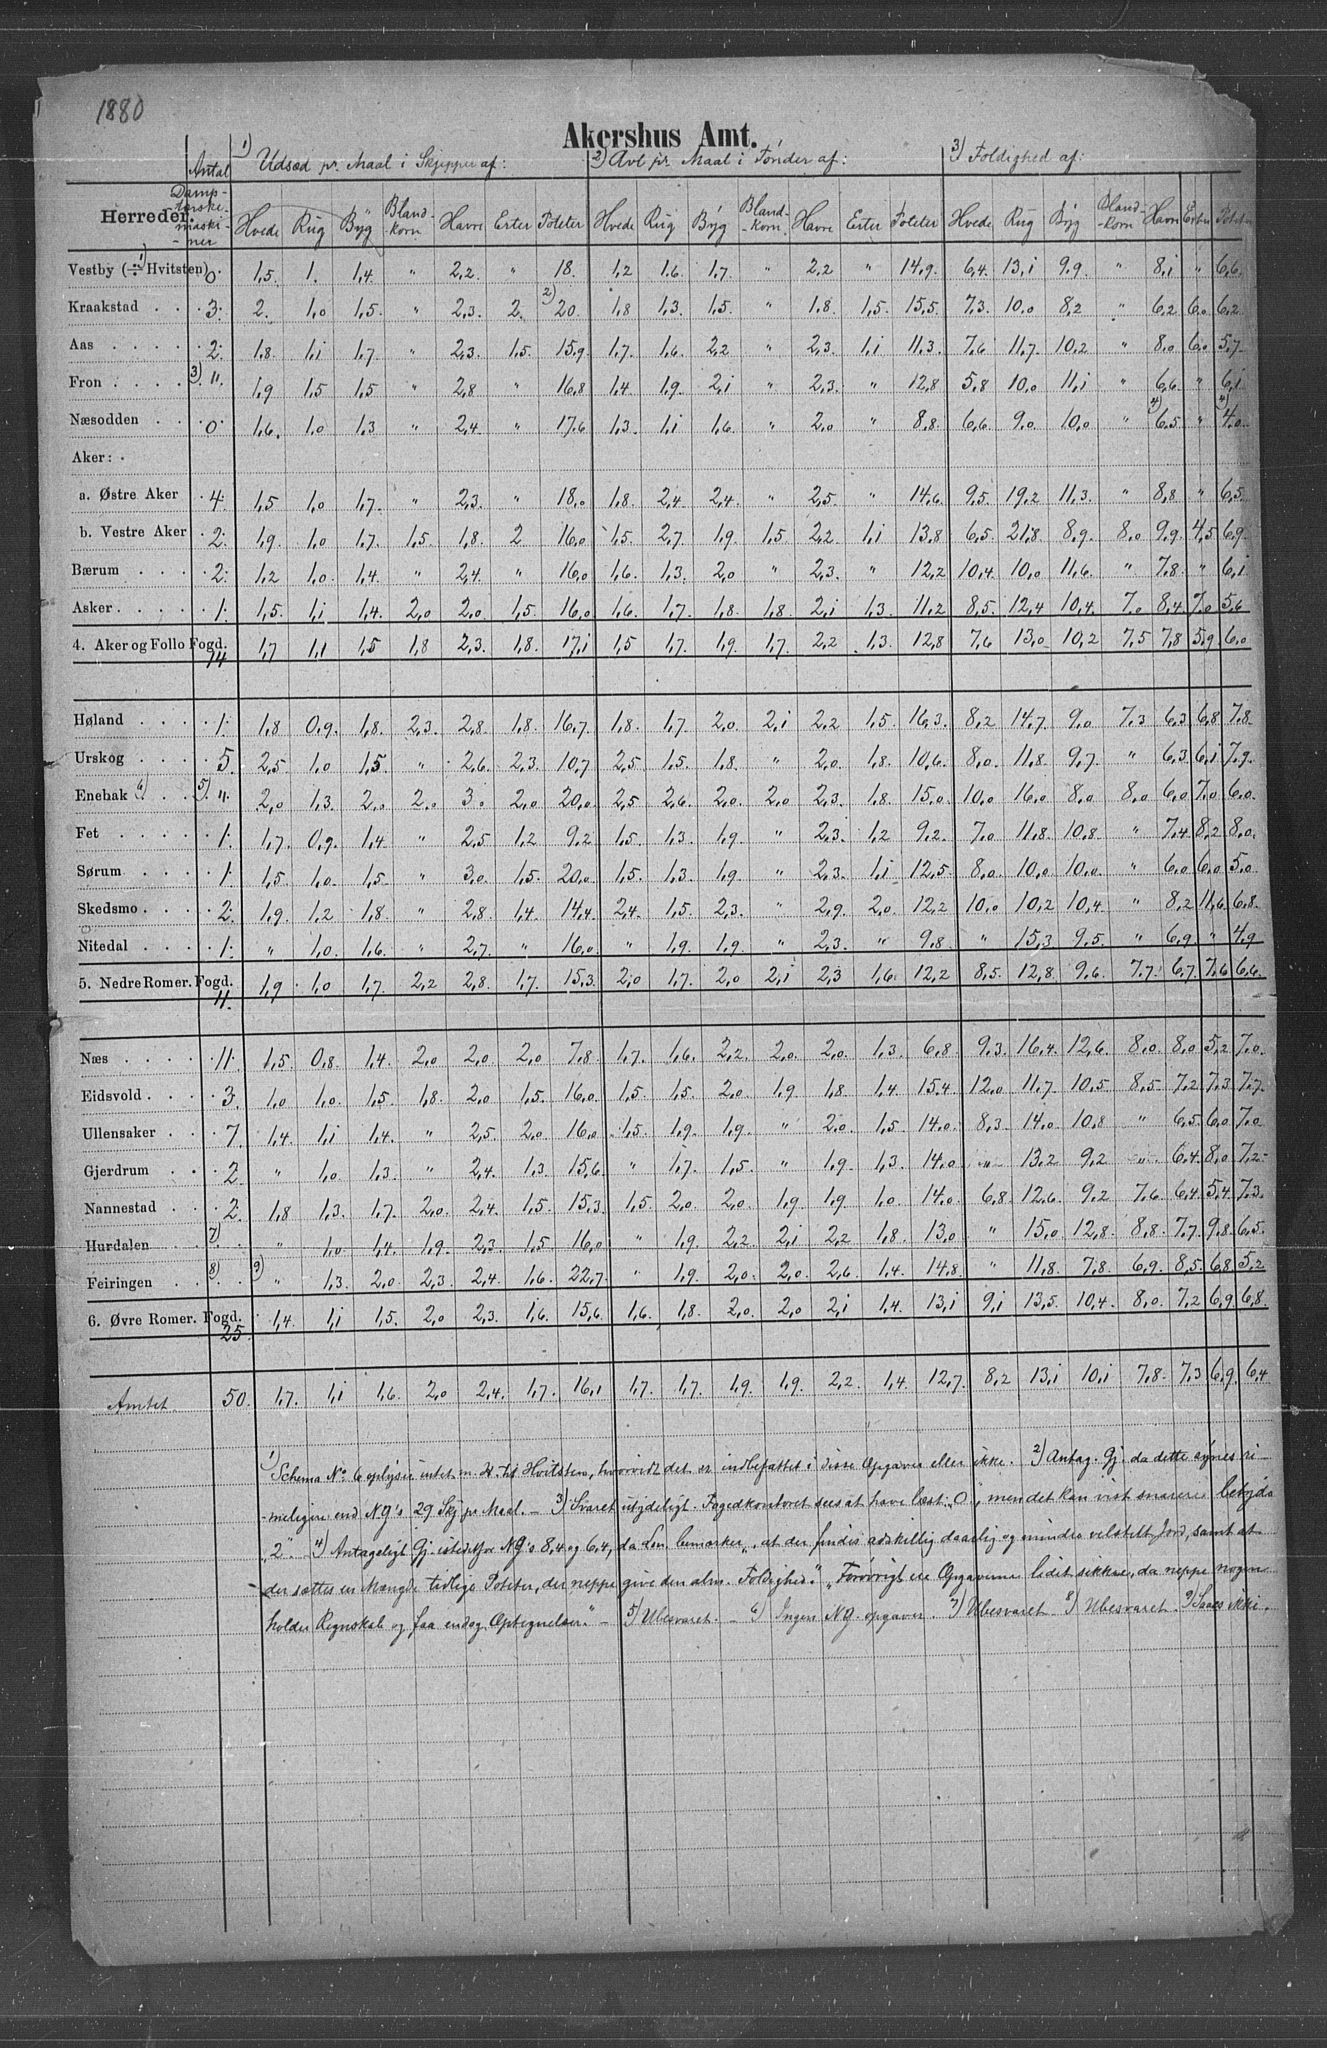 1880
Akershus Amt.
Antal Damptærskemaskiner 1) Udsæd pr. Maal i Skjepper af: 2) Avl pr. Maal i Tønder af: 3) Foldighed af:
Herreder. Hvede Rug Byg Blandkorn Havre Erter Poteter Hvede Rug Byg Blandkorn Havre Erter Poteter Hvede Rug Byg Blandkorn Havre Erter Poteter
Vestby (÷ Hvitsten) 1) 0. 1,5. 1. 1,4. " 2,2. " 18. 1,2 1,6. 1,7. " 2,2 " 14,9. 6,4. 13,1 9,9. " 8,1 " 6,6.
Kraakstad . . . 3. 2. 1,0 1,5. " 2,3. 2. 2) 20. 1,8 1,3. 1,5. " 1,8. 1,5. 15,5. 7,3. 10,0 8,2 " 6,2 6,0 6,2.
Aas . . . . . 2. 1,8. 1,1 1,7. " 2,3. 1,5. 15,9. 1,7. 1,6 2,2 " 2,3. 1,1 11,3. 7,6 11,7. 10,2 " 8,0 6,0 5,7.
Fron . . . . 3) " 1,9 1,5 1,5 " 2,8 " 16,8 1,4 1,9. 2,1 " 2,3. " 12,8 5,8 10,0 11,1 " 6,6. " 6,1
Næsodden . . . 0. 1,6. 1,0 1,3 " 2,4. " 17,6 1,3. 1,1 1,6. " 2,0. " 8,8. 6,6. 9,0. 10,0 " 4) 6,5. " 4) 4,0.
Aker: .
a. Østre Aker . 4. 1,5 1,0 1,7. " 2,3. " 18,0 1,8. 2,4 2,4. " 2,5. " 14,6. 9,5. 19,2 11,3. " 8,8 " 6,5.
b. Vestre Aker . 2. 1,9. 1,0 1,7. 1,5. 1,8. 2 16,0 1,5. 2,7. 1,9 1,5 2,2 1,1 13,8 6,5. 21,8 8,9. 8,0 9,9. 4,5 6,9.
Bærum . . . . 2. 1,2 1,0. 1,4. " 2,4. " 16,0 1,6. 1,3. 2,0 " 2,3. " 12,2 10,4. 10,0 11,6. " 7,8. " 6,1
Asker . . . . 1. 1,5. 1,1 1,4. 2,0 2,0. 1,5. 16,0 1,6. 1,7. 1,8. 1,8 2,1 1,3. 11,2 8,5. 12,4 10,4. 7,0 8,4. 7,0 5,6
4. Aker og Follo Fogd. 14 1,7 1,1 1,5 1,8 2,3. 1,8. 17,1 1,5 1,7. 1,9 1,7. 2,2 1,3. 12,8 7,6 13,0 10,2 7,5 7,8 5,9 6,0
Høland . . . . 1. 1,8 0,9. 1,8. 2,3. 2,8. 1,8. 16,7. 1,8. 1,7 2,0. 2,1 2,2 1,5. 16,3. 8,2 14,7. 9,0 7,3 6,3 6,8 7,8.
Urskog . . . . 5. 2,5. 1,0 1,5. " 2,6. 2,3. 10,7 2,5 1,5. 1,8. " 2,0. 1,8. 10,6. 8,0. 11,8. 9,7. " 6,3. 6,1 7,9.
Enebak 6) . . 5) " 2,0. 1,3. 2,0. 2,0. 3,0. 2,0. 20,0. 2,5. 2,6. 2,0. 2,0 2,3. 1,8. 15,0. 10,0 16,0 8,0 8,0 6,0 7,0 6,0.
Fet . . . . . 1. 1,7. 0,9. 1,4. " 2,5. 1,2 9,2 1,5. 1,3. 1,9. " 2,3. 1,2 9,2. 7,0 11,8. 10,8. " 7,4 8,2 8,0.
Sørum . . . . 1. 1,5. 1,0. 1,5. " 3,0. 1,5. 20,0. 1,5. 1,3. 1,9 " 2,3. 1,1 12,5 8,0. 10,0 10,0. " 6,0 6,0 5,0.
Skedsmo . . . 2. 1,9. 1,2 1,8. " 2,8. 1,4. 14,4 2,4. 1,5. 2,3. " 2,9. 2,0. 12,2 10,0 10,2 10,4. " 8,2 11,6 6,8.
Nitedal . . . . 1. " 1,0. 1,6. " 2,7. " 16,0. " 1,9. 1,9. " 2,3. " 9,8. " 15,3 9,5. " 6,9. " 4,9
5. Nedre Romer. Fogd. 11. 1,9 1,0 1,7. 2,2 2,8. 1,7. 15,3. 2,0 1,7. 2,0 2,1 2,3 1,6. 12,2 8,5. 12,8. 9,6. 7,7. 6,7. 7,6 6,6.
Næs . . . . . 11. 1,5 0,8. 1,4. 2,0 2,0. 2,0 7,8. 1,7. 1,6. 2,2. 2,0. 2,0. 1,3. 6,8 9,3. 16,4. 12,6. 8,0. 8,0. 5,2 7,0.
Eidsvold . . . . 3. 1,0 1,0. 1,5. 1,8. 2,0 1,5. 16,0. 1,5 1,5. 2,0 1,9 1,8. 1,4 15,4 12,0 11,7. 10,5. 8,5. 7,2 7,3. 7,7.
Ullensaker . . . 7. 1,4. 1,1 1,4. " 2,5. 2,0 16,0 1,5. 1,9. 1,9. " 2,0. 1,5. 14,0. 8,3. 14,0 10,8 " 6,5. 6,0 7,0
Gjerdrum . . . 2 " 1,0 1,3. " 2,4. 1,3. 15,6. " 1,7. 1,5. " 1,9. 1,3. 14,0 " 13,2 9,2 " 6,4. 8,0 7,2
Nannestad . . . 2. 1,8 1,3. 1,7. 2,0. 2,4. 1,5. 15,3. 1,5 2,0. 2,0. 1,9 1,9. 1,0. 14,0 6,8 12,6. 9,2 7,6 6,4. 5,4. 7,3.
Hurdalen . . 7) . " 1,0 1,4. 1,9. 2,3. 1,5. 16,0 " 1,9. 2,2 2,1 2,2 1,8. 13,0 " 15,0 12,8. 8,8. 7,7. 9,8 6,5.
Feiringen . . 8) . 9) " 1,3. 2,0. 2,3. 2,4. 1,6. 22,7. " 1,9 2,0. 2,0. 2,6. 1,4. 14,8. " 11,8 7,8. 6,9. 8,5. 6,8 5,2
6. Øvre Romer. Fogd. 25. 1,4. 1,1 1,5. 2,0 2,3. 1,6. 15,6. 1,6. 1,8. 2,0. 2,0 2,1 1,4. 13,1 9,1 13,5 10,4. 8,0. 7,2 6,9 6,8.
Amtet. 50. 1,7. 1,1 1,6. 2,0 2,4. 1,7. 16,1 1,7. 1,7. 1,9. 1,9. 2,2 1,4. 12,7. 8,2 13,1 10,1 7,8. 7,3 6,9. 6,4
1) Schema No 6 oplyser intet m. H. til Hvitsten, hvorvidt det er indbefattet i disse Opgaver eller ikke. 2) Antag. Gj. da dette synes ri-
meligere end NG's 29 Skj. pr. Maal. — 3) Svaret utydeligt. Fogedkontoret sees at have læst „0“, men det kan vist snarere betyde
„2“. 4) Antageligt Gj. istedetfor NG's 8,4 og 6,4, da Lm. bemærker, „at der findes adskillig daarlig og mindre velstelt Jord, samt at
der sættes en Mængde tidlige Poteter, der neppe give den alm. Foldighed.“ „Forøvrigt ere Opgaverne lidet sikkre, da neppe nogen
holder Regnskab og faa endog Optegnelser.“ — 5) Ubesvaret. — 6) Ingen NG. opgaver. 7) Ubesvaret 8) Ubesvaret. 9) Saaes ikke.